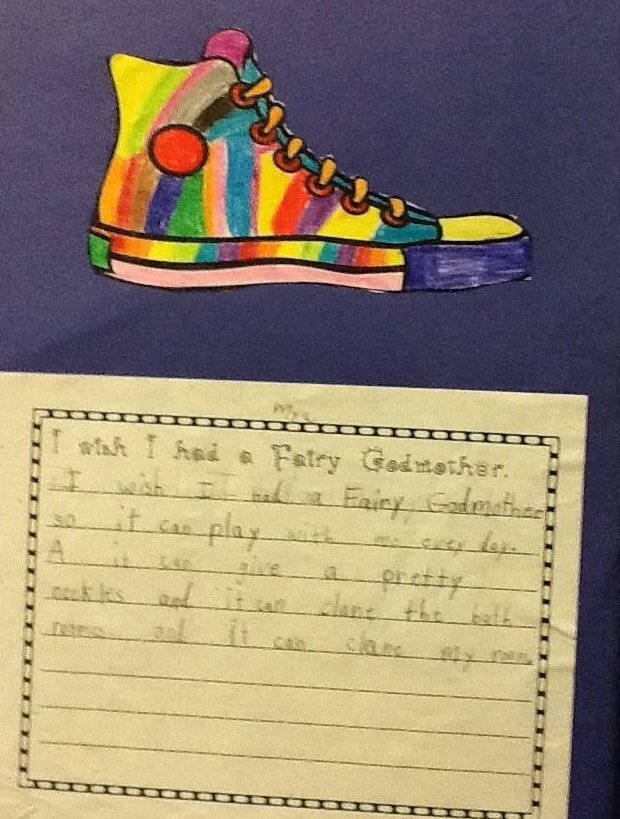 Mya
I wish I had a Fairy Godmother.
I wish I had a Fairy Godmother
so it can play with me every day.
A it can give a pretty
neckles and it can clane the bath
rooms and it can clane my room